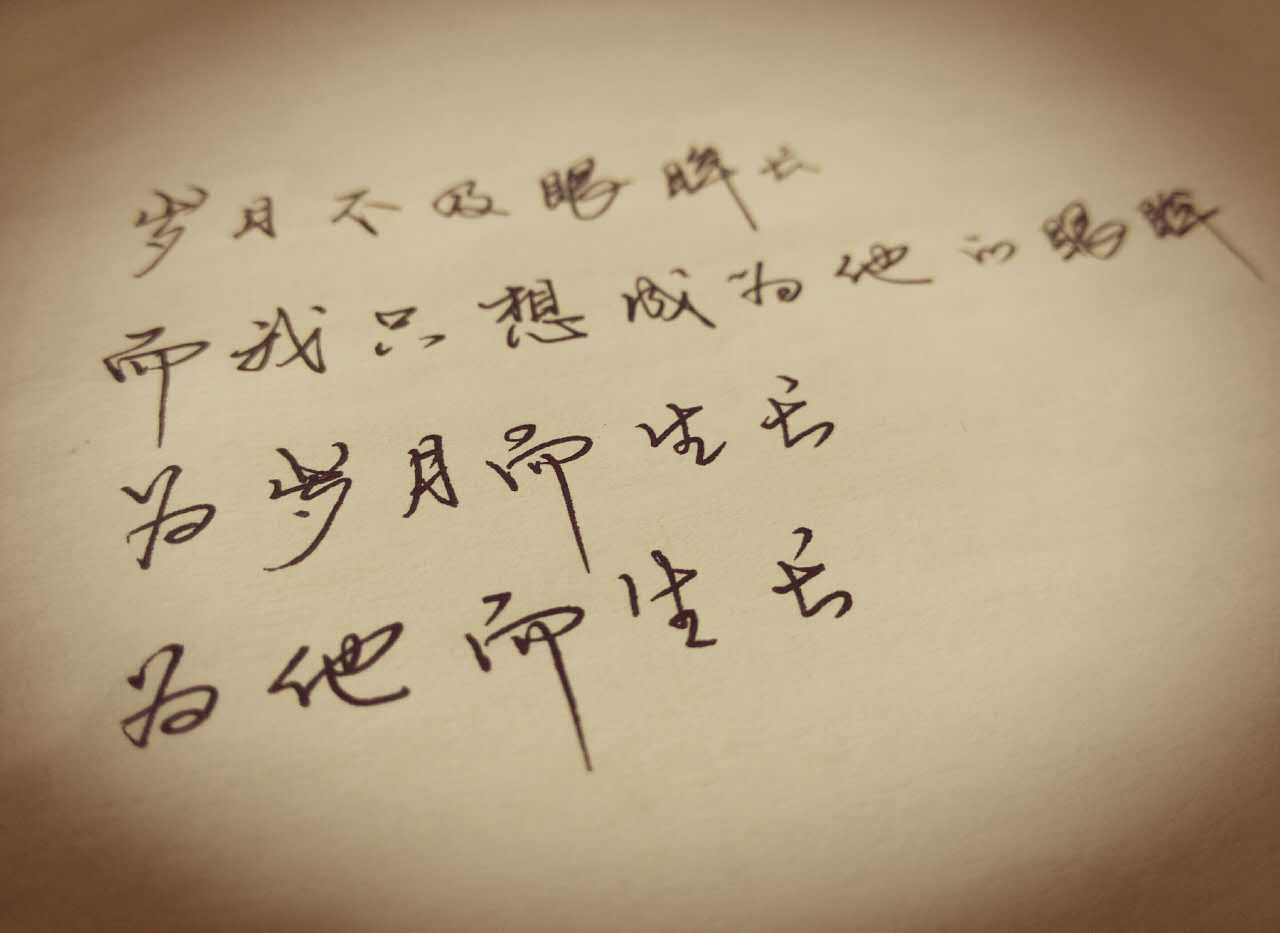 岁月不及眼眸长
而我只想成为他的眼眸
为岁月而生长
为他而生长